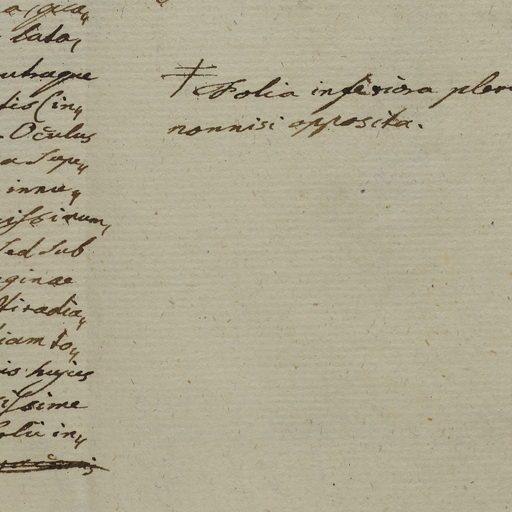 lata,
utraque
tis (in„
Oculus
a supe„
innu„
issimum,
sed sub
aginae
tiradia„
iam to„
is hujus
issime
in„
‡ Folia inferiora pler
nonnisi opposita.